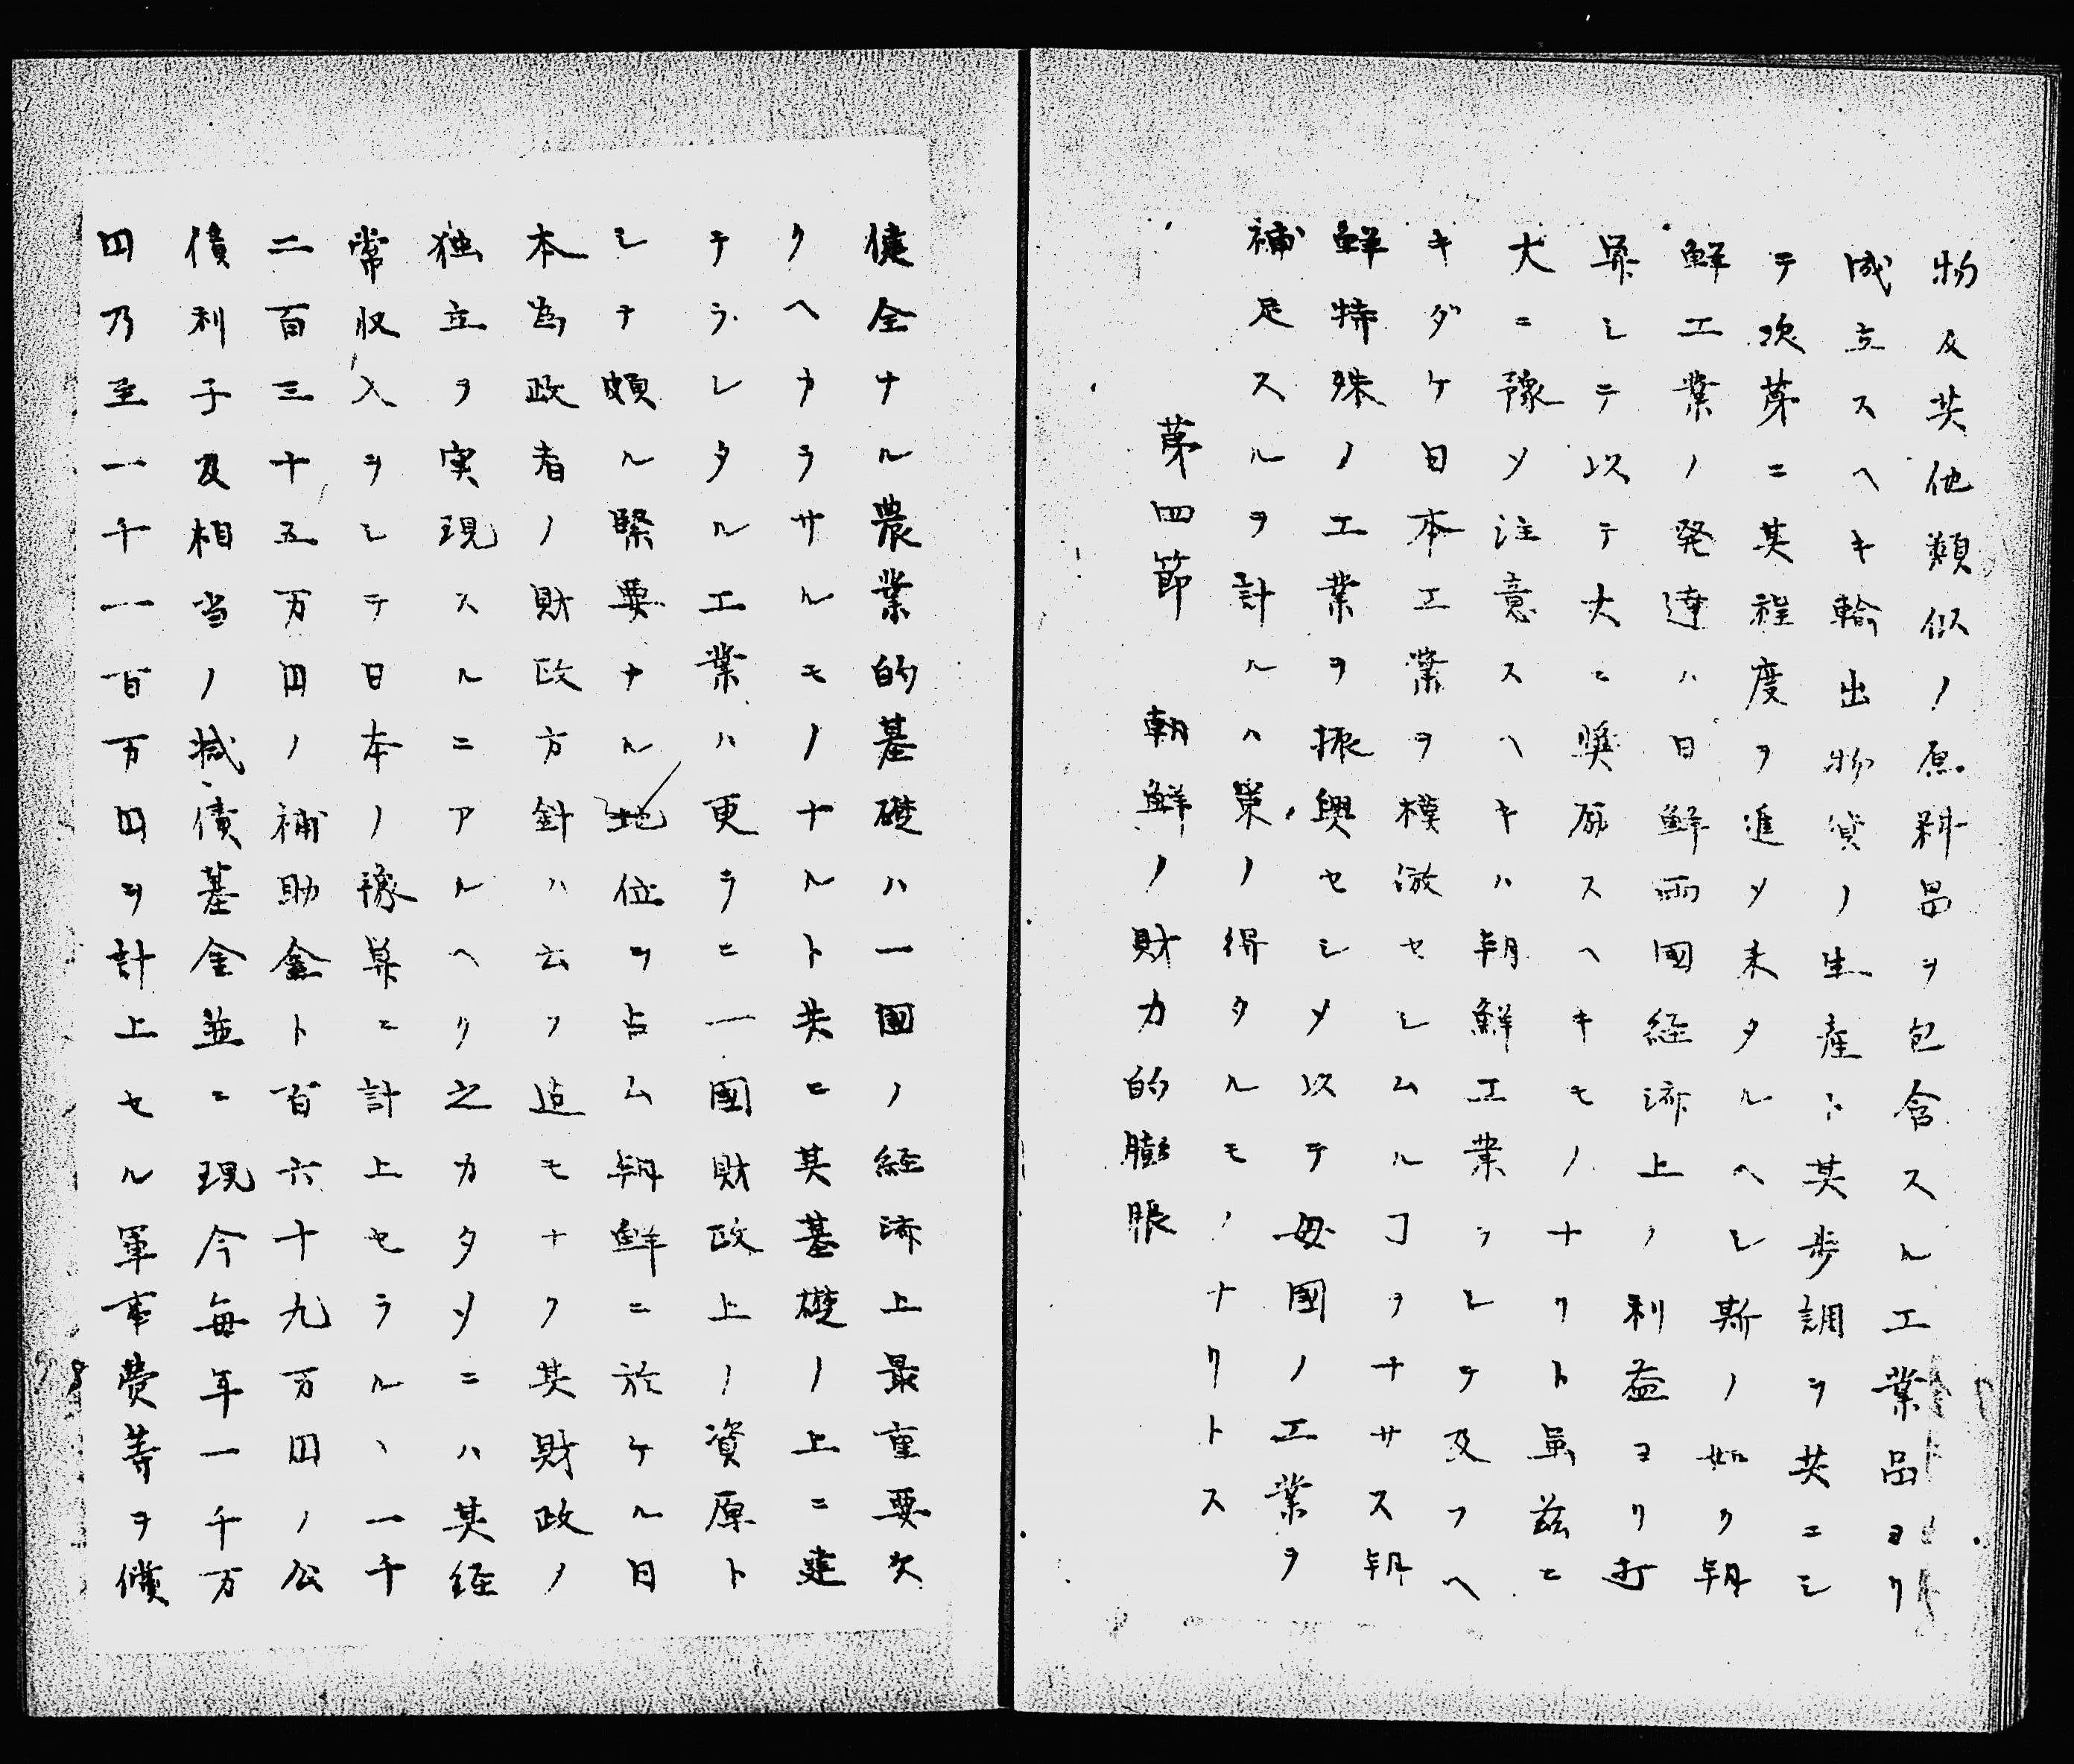 物及其他類似ノ原料品ヲ包含スル工業品ヨリ
成立スヘキ輸出物貨ノ生産ト其歩調ヲ共ニシ
テ次第ニ其程度ヲ進メ来タルヘシ斯ノ如ク朝
鮮工業ノ発達ハ日鮮両國経済上ノ利益ヨリ打
算シテ以テ大ニ奨励スヘキモノナリト虽茲ニ
大ニ豫メ注意スヘキハ朝鮮工業ヲシテ及フヘ
キダケ日本工業ヲ模倣セシムルヿヲナサス朝
鮮特殊ノ工業ヲ振興セシメ以テ母國ノ工業ヲ
補足スルヲ計ルハ策ノ得タルモノナリトス
第四節　朝鮮ノ財力的膨脹
健全ナル農業的基礎ハ一國ノ経済上最重要欠
クヘカラサルモノナルト共ニ其基礎ノ上ニ建
テラレタル工業ハ更ラニ一國財政上ノ資原ト
シテ頗ル緊要ナル地位ヲ占ム朝鮮ニ於ケル日
本為政者ノ財政方針ハ云フ迠モナク其財政ノ
独立ヲ実現スルニアルヘク之カタメニハ其経
常収入ヲシテ日本ノ豫算ニ計上セラルヽ一千
二百三十五万円ノ補助金ト百六十九万円ノ公
債利子及相当ノ減債基金並ニ現今毎年一千万
円乃至一千一百万円ヲ計上セル軍事費等ヲ償